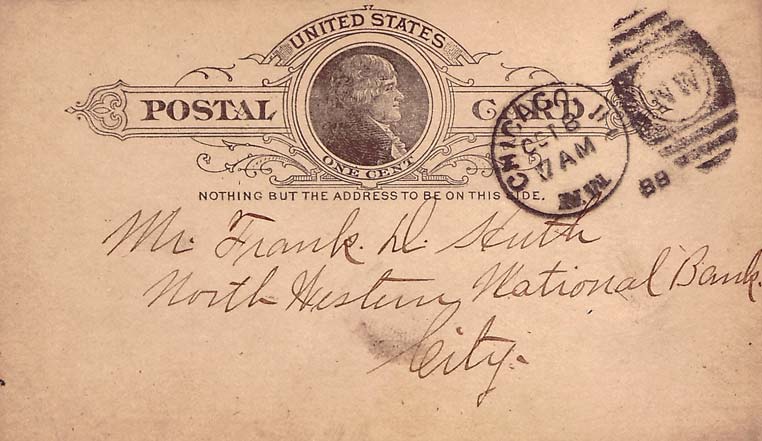 UNITED STATES
POSTAL CARD
ONE CENT
NOTHING BUT THE ADDRESS TO BE ON THIS SIDE.
CHICAGO, ILL
OCT 8
7 AM
N.W.
NW
88
Mr. Frank. D. Huth
North Western National Bank.
City.